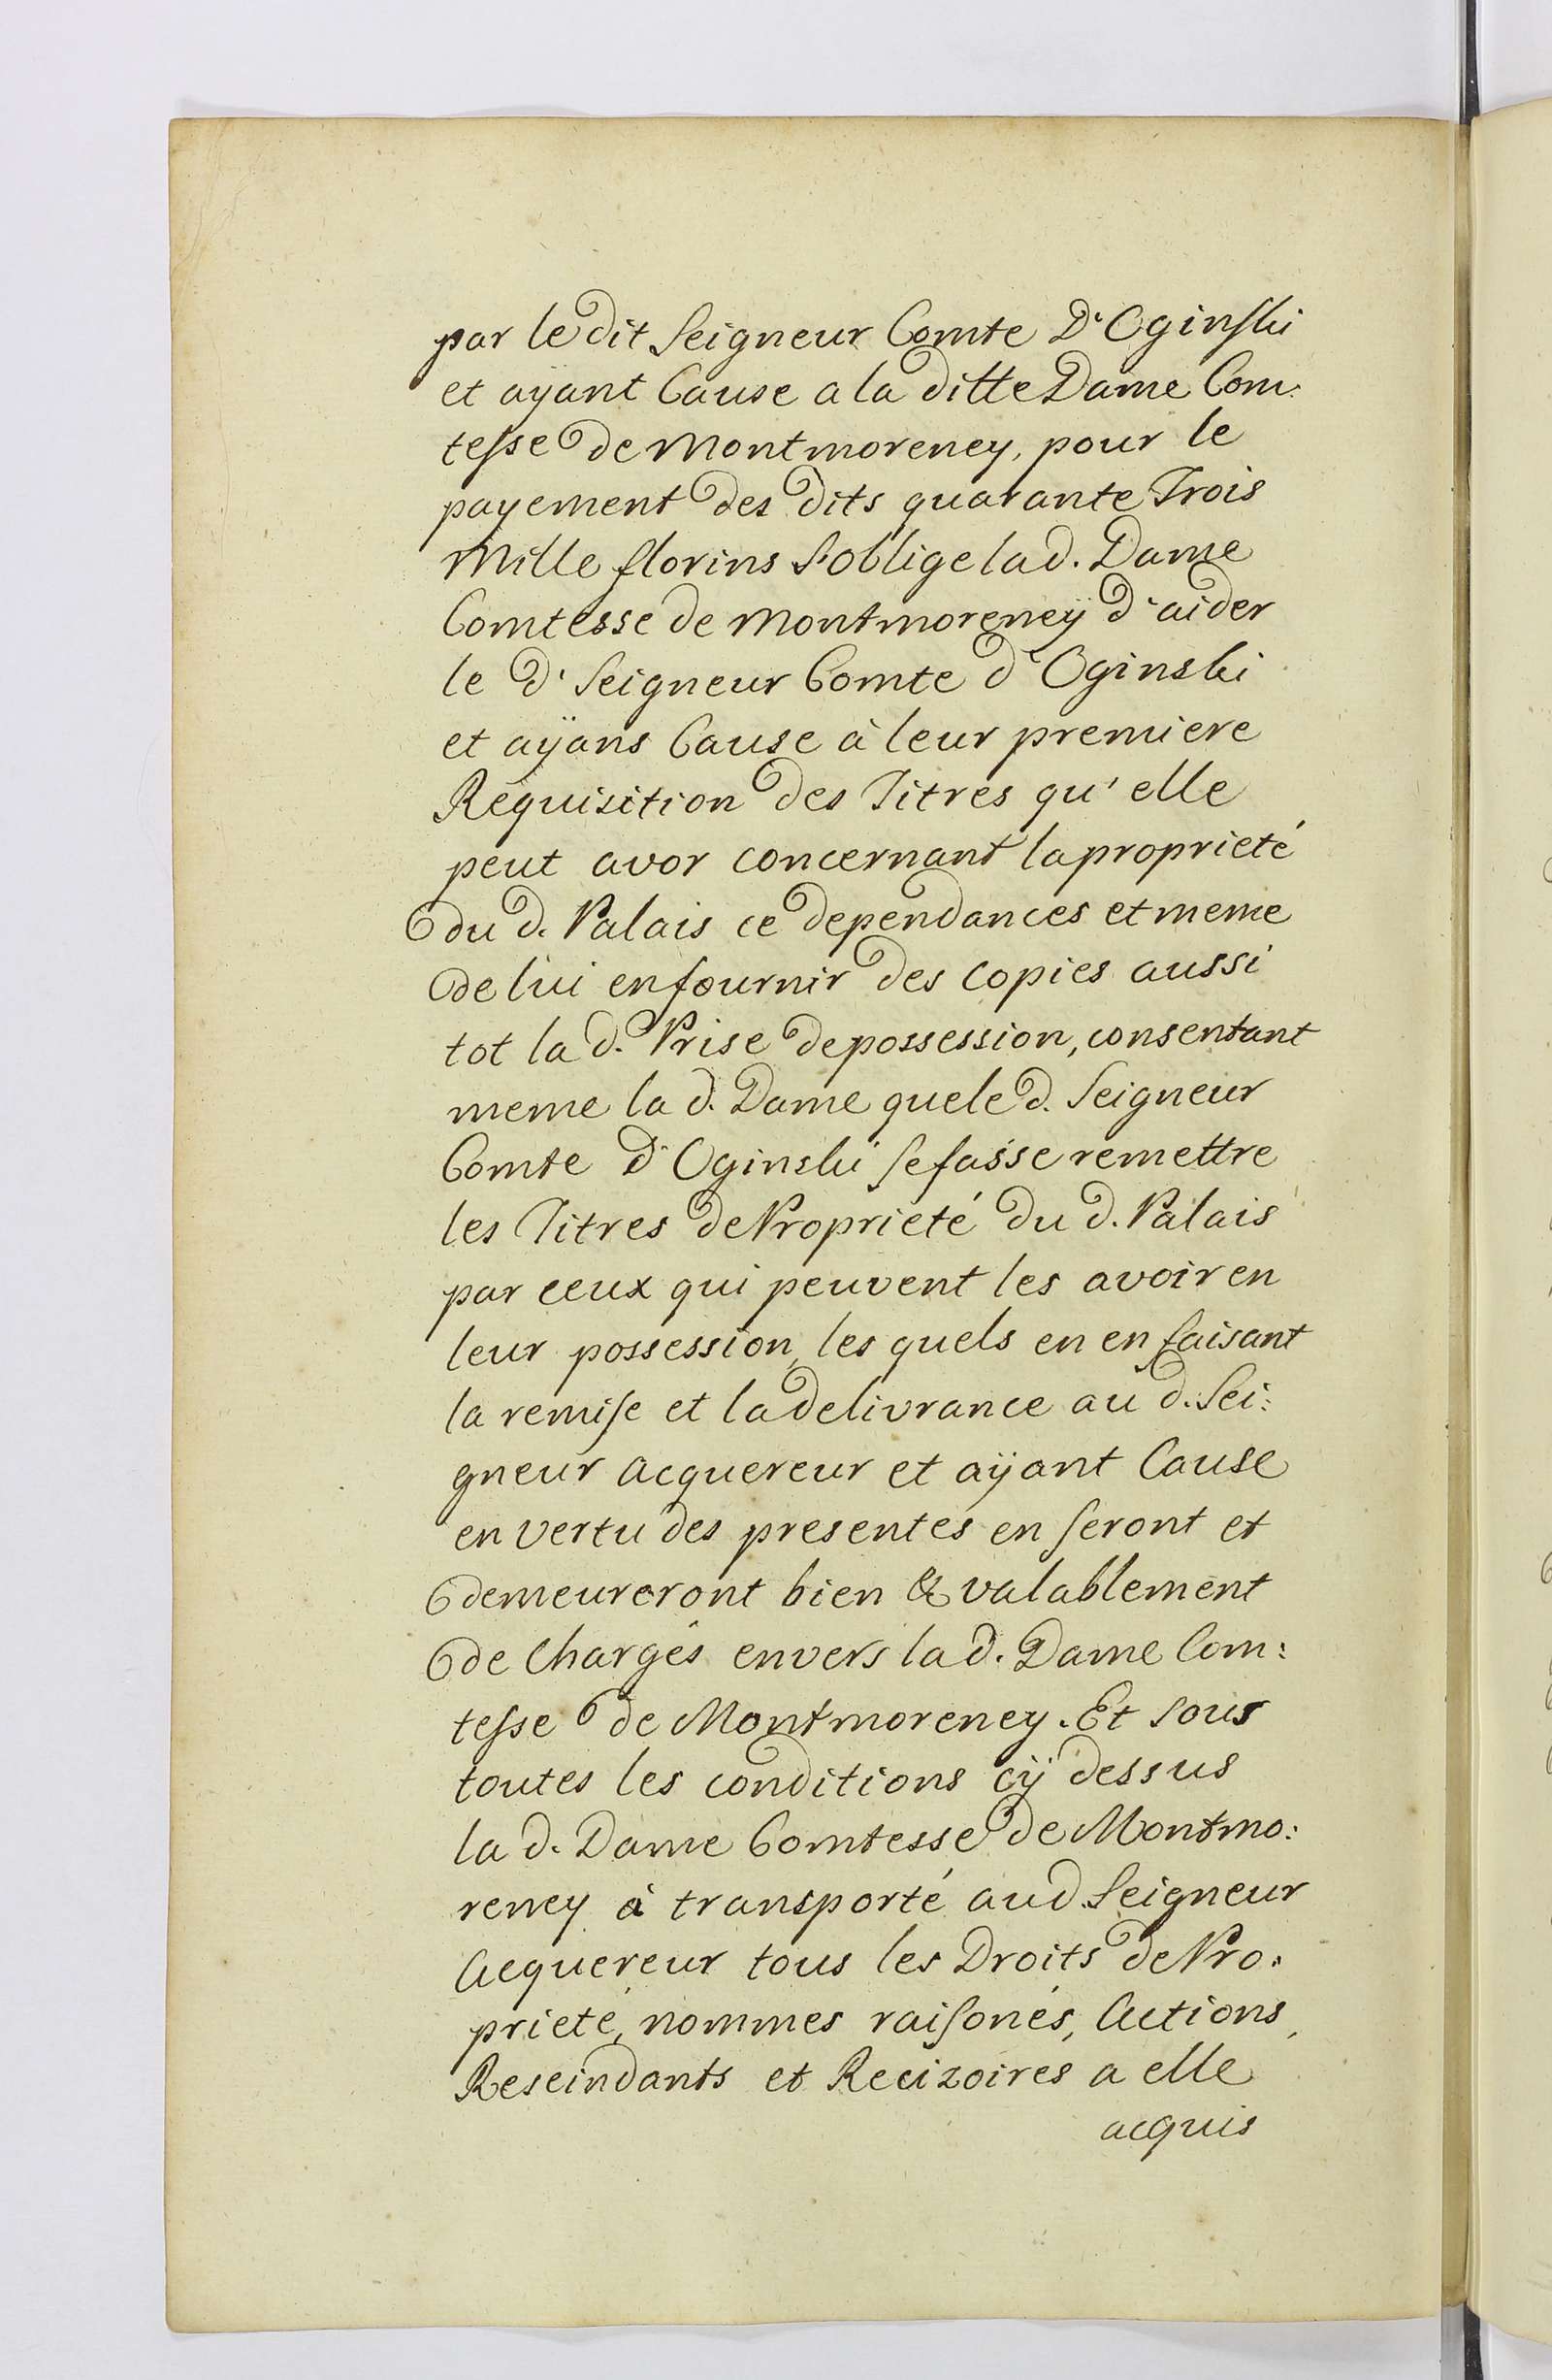 par le dit Seigneur Comte D'Oginski
et aÿant Cause a la ditte Dame Com:
tesse de Montmorency, pour le
payement des dits quarante Trois
Mille florins s'oblige la d. Dame
Comtesse de Montmorencÿ d'aider
le d. Seigneur Comte d'Oginski
et aÿans Cause à leur premiere
Requisition des Titres qu'elle
peut avor concernant la proprieté
du d. Palais ce dependances et meme
de lui en fournir des Copies aussi
tot la d. Prise de possession, consentant
meme la d. Dame que le d. Seigneur
Comte d'Oginski se fasse remettre
les Titres de Proprieté du d. Palais
par ceux qui peuvent les avoir en
leur possession, les quels en en faisant
la remise et la delivrance au d. Sei:
gneur acquereur et aÿant Cause
en vertu des presentes en seront et
demeureront bien & valablement
de Chargés envers la d. Dame Com:
tesse de Montmorency. Et sous
toutes les conditions cÿ dessus
la d. Dame Comtesse de Montmo:
rency à transporté au d. Seigneur
Acquereur tous les Droits de Pro:
prieté, nommes raisonés, Actions,
Rescindants et Recizoires a elle
acquis